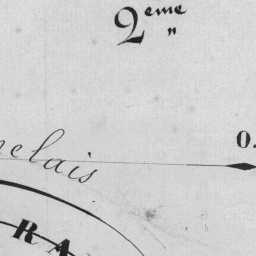 2eme
"
elais
O.
RA